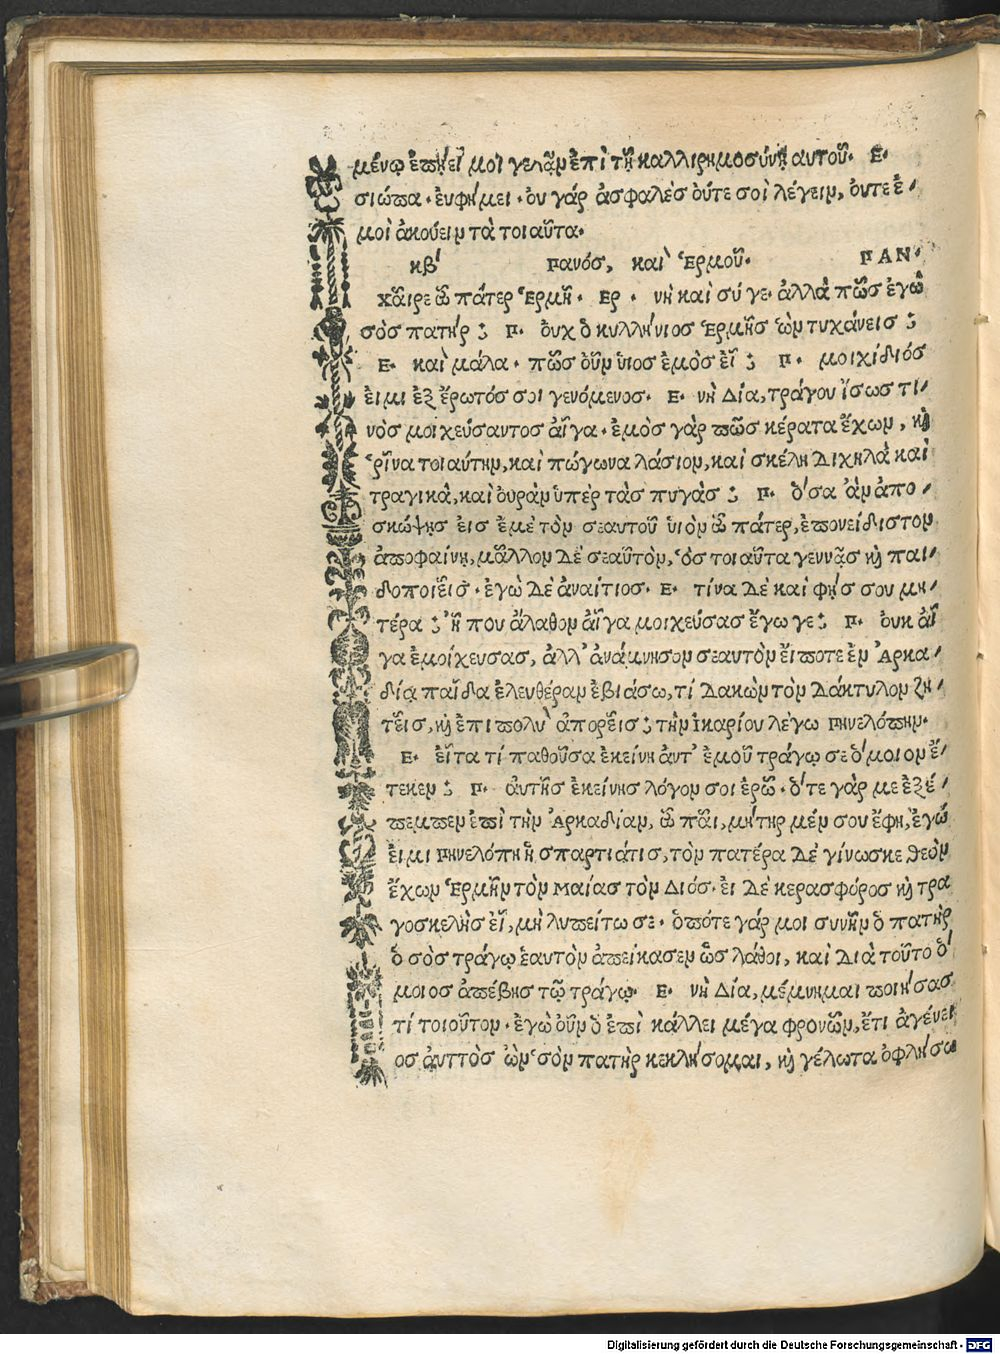 μένῳ ἐπῄει μοι γελᾷν ἐπὶ τῇ καλλιρημοσύνῃ αυτοῦ. Ε.
σιώπα. ἐυφήμει. ὀυ γάρ ἀσφαλὲς ὀύτε σοὶ λέγειν, ὀυτε ἐ-
μοὶ ἀκούειν τὰ τοιαῦτα.
κβ' Πανός, καὶ Ἑρμοῦ. ΠΑΝ.
Χαῖρε ὦ πάτερ Ἑρμῆ. Ερ. νὴ καὶ σύ γε. ἀλλὰ πῶς ἐγὼ
σὸς πατήρ; Π. ὀυχ ὁ κυλλήνιος Ἑρμῆς ὢν τυχάνεις;
Ε. καὶ μάλα. πῶς ὀῦν ὑιος ἐμὸς ἐῖ; Π. μοιχίδιός
ἐιμι ἐξ ἔρωτός σοι γενόμενος. Ε. νὴ Δία, τράγου ἴσως τι-
νὸς μοιχεύσαντος ἀῖγα. ἐμὸς γὰρ πῶς κέρατα ἔχων, κὴ
ῥῖνα τοιαύτην, καὶ πώγωνα λάσιον, καὶ σκέλη Διχηλὰ καὶ
τραγικὰ, καὶ ὀυρὰν ὑπὲρ τὰς πυγάς; Π. ὅσα ἂν ἀπο-
σκώψῃς ἐις ἐμὲ τὸν σεαυτοῦ ὑιὸν ὦ πάτερ, ἐπονείδιστον
ἀποφαίνῃ, μᾶλλον Δὲ σεαῦτὸν, ὃς τοιαῦτα γεννᾷς κὴ παι-
δοποιεῖς. ἐγὼ Δὲ ἀναίτιος. Ε. τίνα Δὲ καὶ φῄς σου μη-
τέρα; ἢ που ἄλαθον ἀῖγα μοιχεύσας ἔγωγε; Π. ὀυκ ἀῖ
γα ἐμοίχευσας, ἀλλ' ἀνάμνησον σεαυτὸν ἔιποτε ἐν Ἀρκα-
δίᾳ παῖδα ἐλευθέραν ἐβιάσω, τί Δακὼν τὸν Δάκτυλον ζη-
τεῖς, κὴ ἐπιπολὺ ἀπορεῖς; τὴν ἰκαρίου λέγω Πηνελόπην.
Ε. εἶτα τί παθοῦσα ἐκείνη ἀντ' ἐμοῦ τράγῳ σε ὅμοιον ἔ-
τεκεν; Π. ἀυτῆς ἐκείνης λόγον σοι ἐρῶ. ὅτε γὰρ με ἐξέ-
πεμπεν ἐπὶ τὴν Ἀρκαδίαν, ὦ πᾶι, μήτηρ μέν σου ἔφη, ἐγὼ
ἐιμι Πηνελόπη ἡ σπαρτιάτις, τὸν πατέρα Δὲ γίνωσκε θεὸν
ἔχων Ἑρμῆν τὸν Μαίας τὸν Διός. ἐι Δὲ κερασφόρος κὴ τρα
γοσκελὴς ἐῖ, μὴ λυπείτω σε. ὁπότε γάρ μοι συνῆν ὁ πατὴρ
ὁ σὸς τράγῳ ἑαυτὸν ἀπείκασεν ὡς λάθοι, καὶ Διὰ τοῦτο ὅ
μοιος ἀπέβης τῷ τράγῳ. Ε. νὴ Δία, μέμνημαι ποιήσας
τί τοιοῦτον. ἐγὼ ὀῦν ὁ ἐπὶ κάλλει μέγα φρονῶν, ἔτι ἀγένει
ος ἀυττὸς ὢν σὸν πατὴρ κεκλήσομαι, κὴ γέλωτα ὀφλήσω
Digitalisierung gefördert durch die Deutsche Forschungsgemeinschaft - DFG